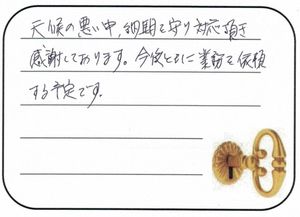 天候の悪い中、納期を守り対応頂き
感謝しております。今後ともに業務を依頼
する予定です。